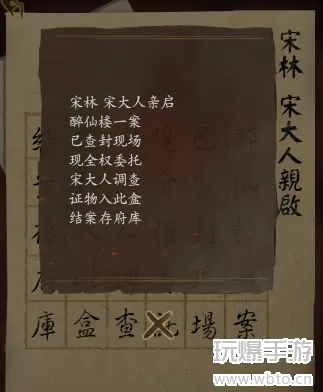 宋林 宋大人親啟
宋林 宋大人亲启
醉仙楼一案
已查封现场
现全权委托
宋大人调查
证物入此盒
结案存府库
庫 盒 查 場 案
玩爆手游
www.wbto.cn